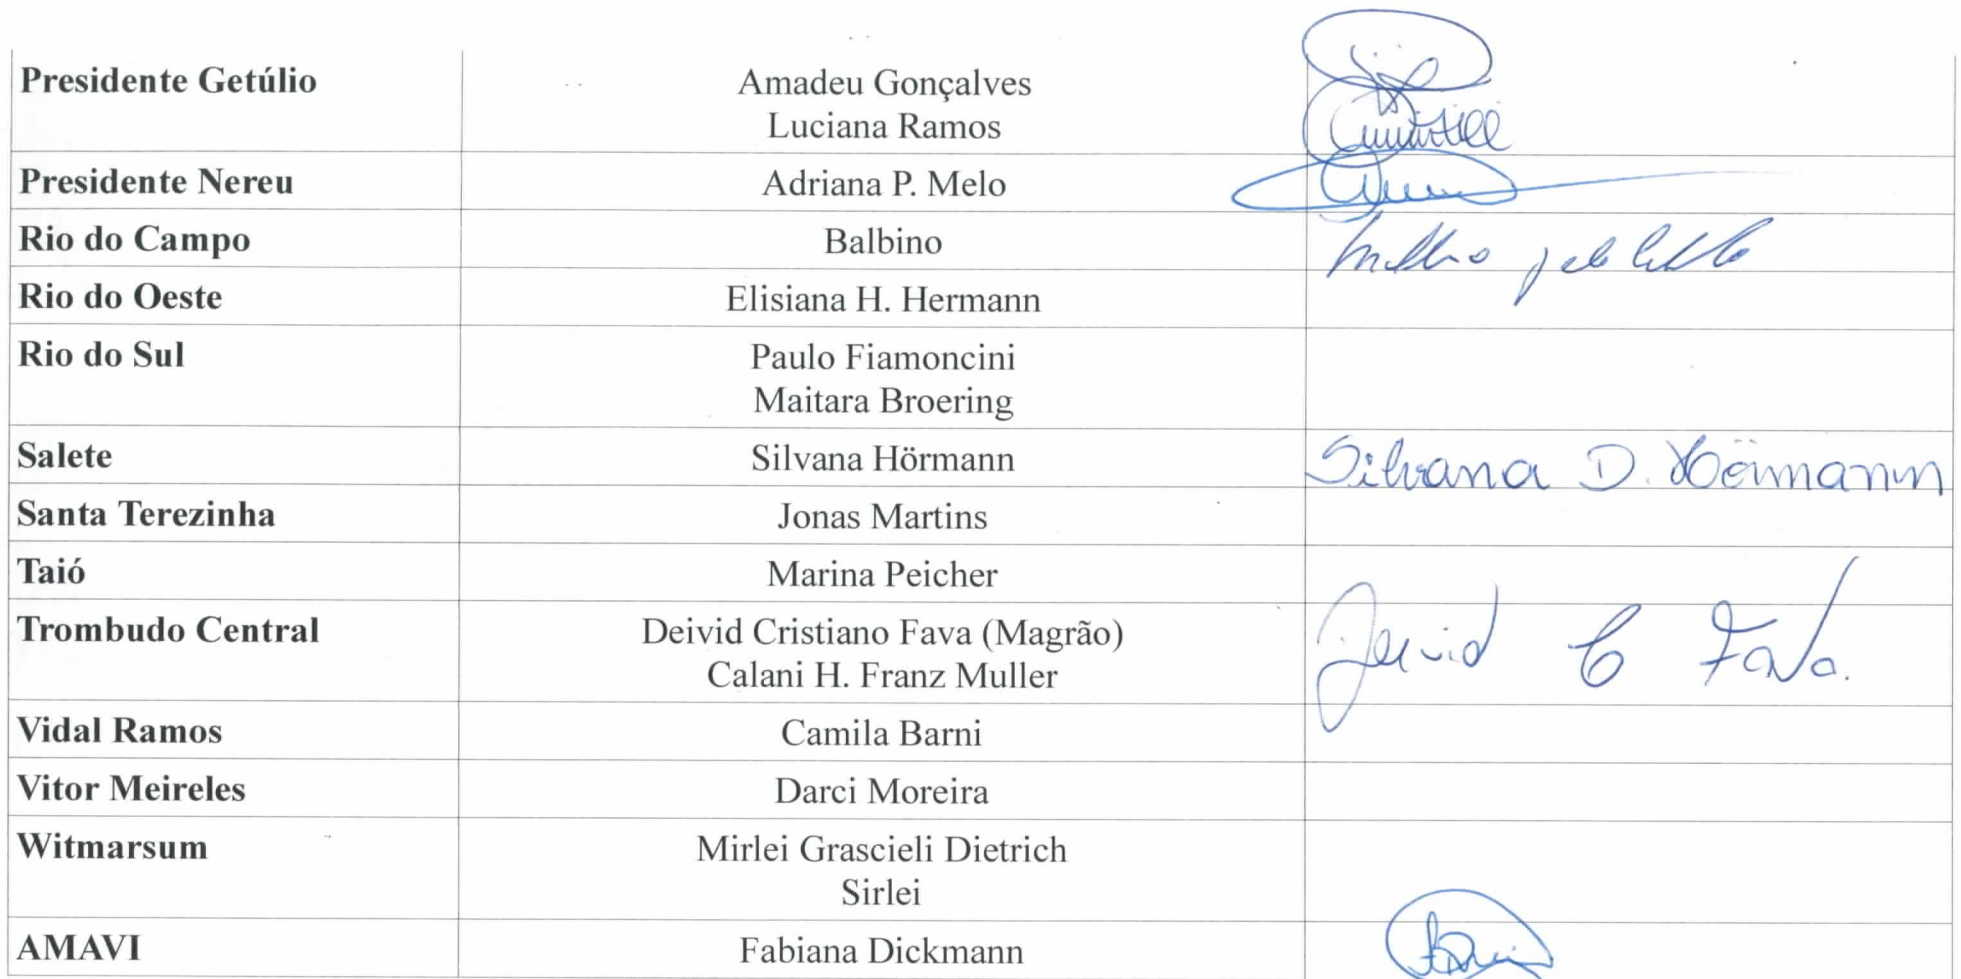 Presidente Getúlio Amadeu Gonçalves
Luciana Ramos
Presidente Nereu Adriana P. Melo
Rio do Campo Balbino
Rio do Oeste Elisiana H. Hermann
Rio do Sul Paulo Fiamoncini
Maitara Broering
Salete Silvana Hörmann Silvana D. Hörmann
Santa Terezinha Jonas Martins
Taió Marina Peicher
Trombudo Central Deivid Cristiano Fava (Magrão) Deivid C Fava.
Calani H. Franz Muller
Vidal Ramos Camila Barni
Vitor Meireles Darci Moreira
Witmarsum Mirlei Grascieli Dietrich
Sirlei
AMAVI Fabiana Dickmann